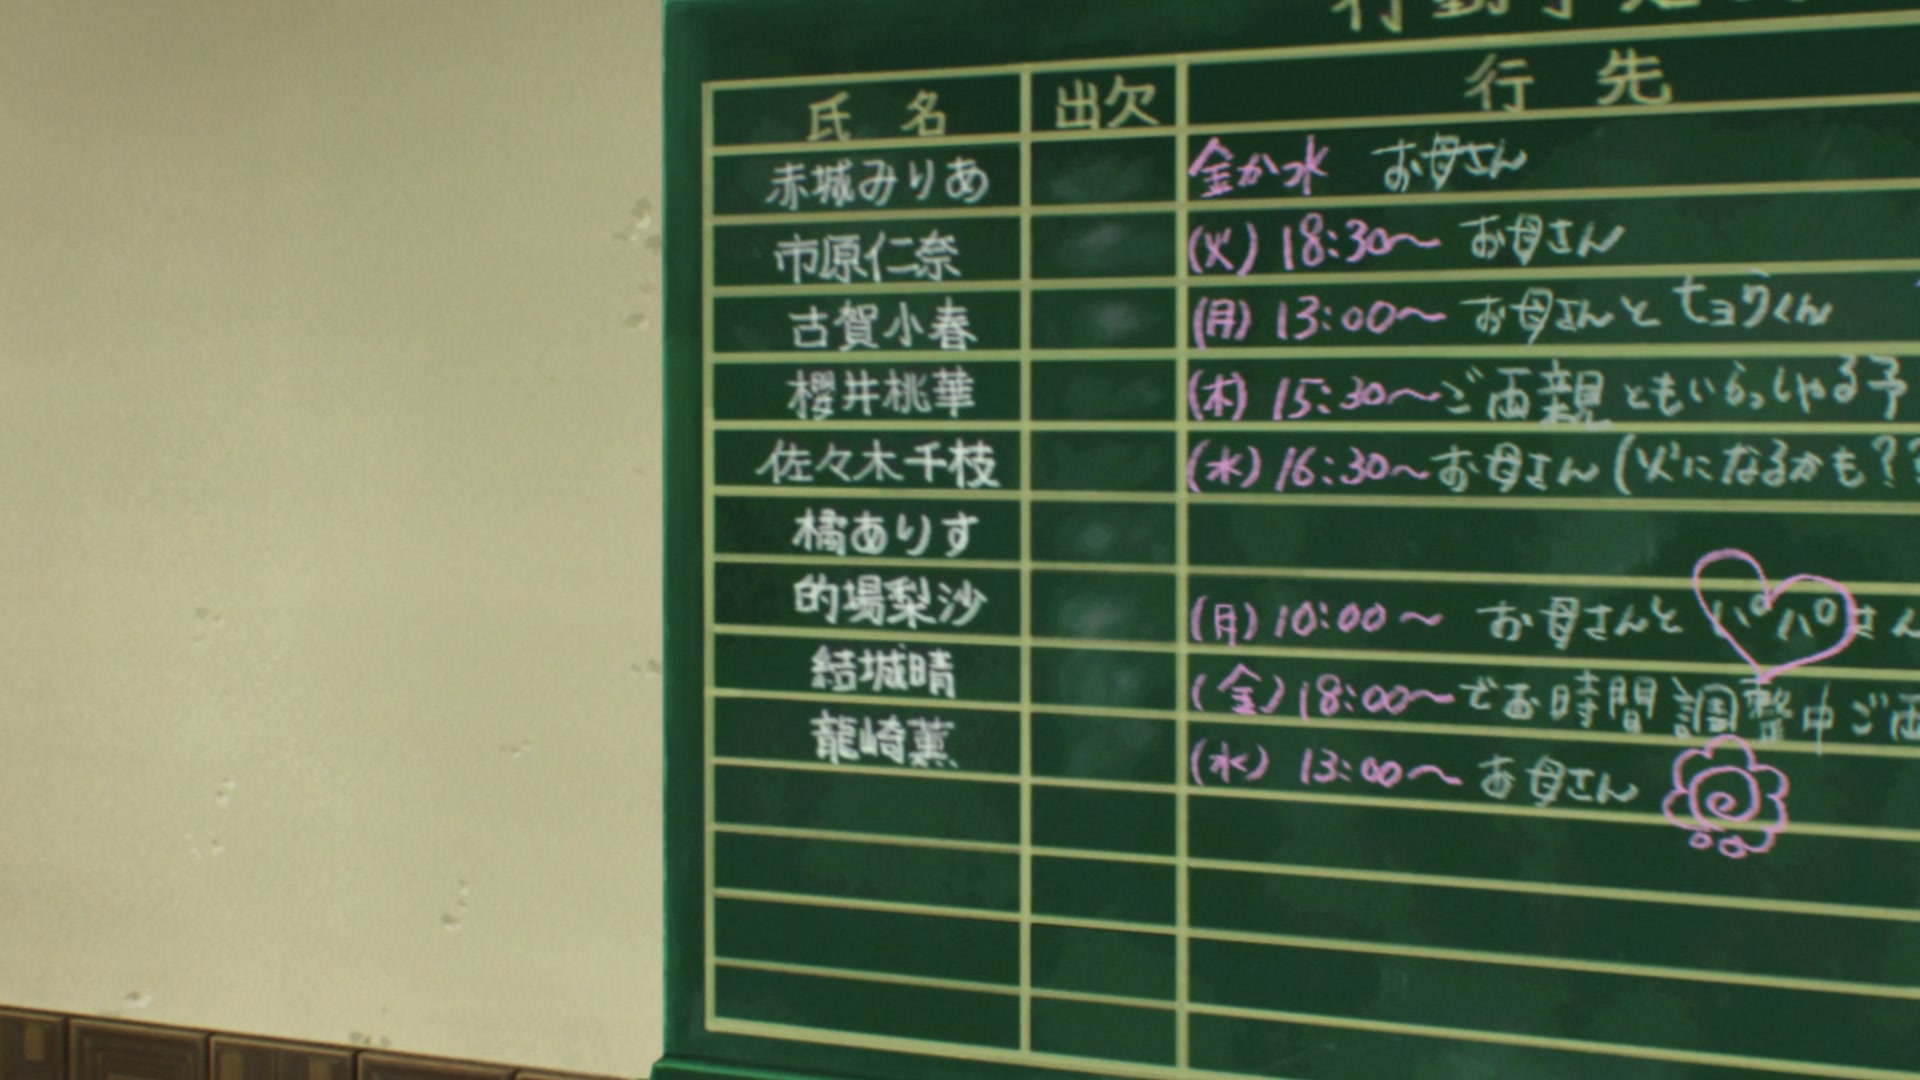 行動予定
氏 名 出欠 行 先
赤城みりあ 金か水 お母さん
市原仁奈 (火) 18:30〜 お母さん
古賀小春 (月) 13:00〜 お母さんとヒョウくん
櫻井桃華 (木) 15:30〜ご両親ともいらっしゃる予
佐々木千枝 (水) 16:30〜お母さん(火になるかも??
橘ありす
的場梨沙 (月) 10:00〜 お母さんとパパさん
結城晴 (金) 18:00〜でお時間調整中ご両
龍崎薫 (水) 13:00〜 お母さん